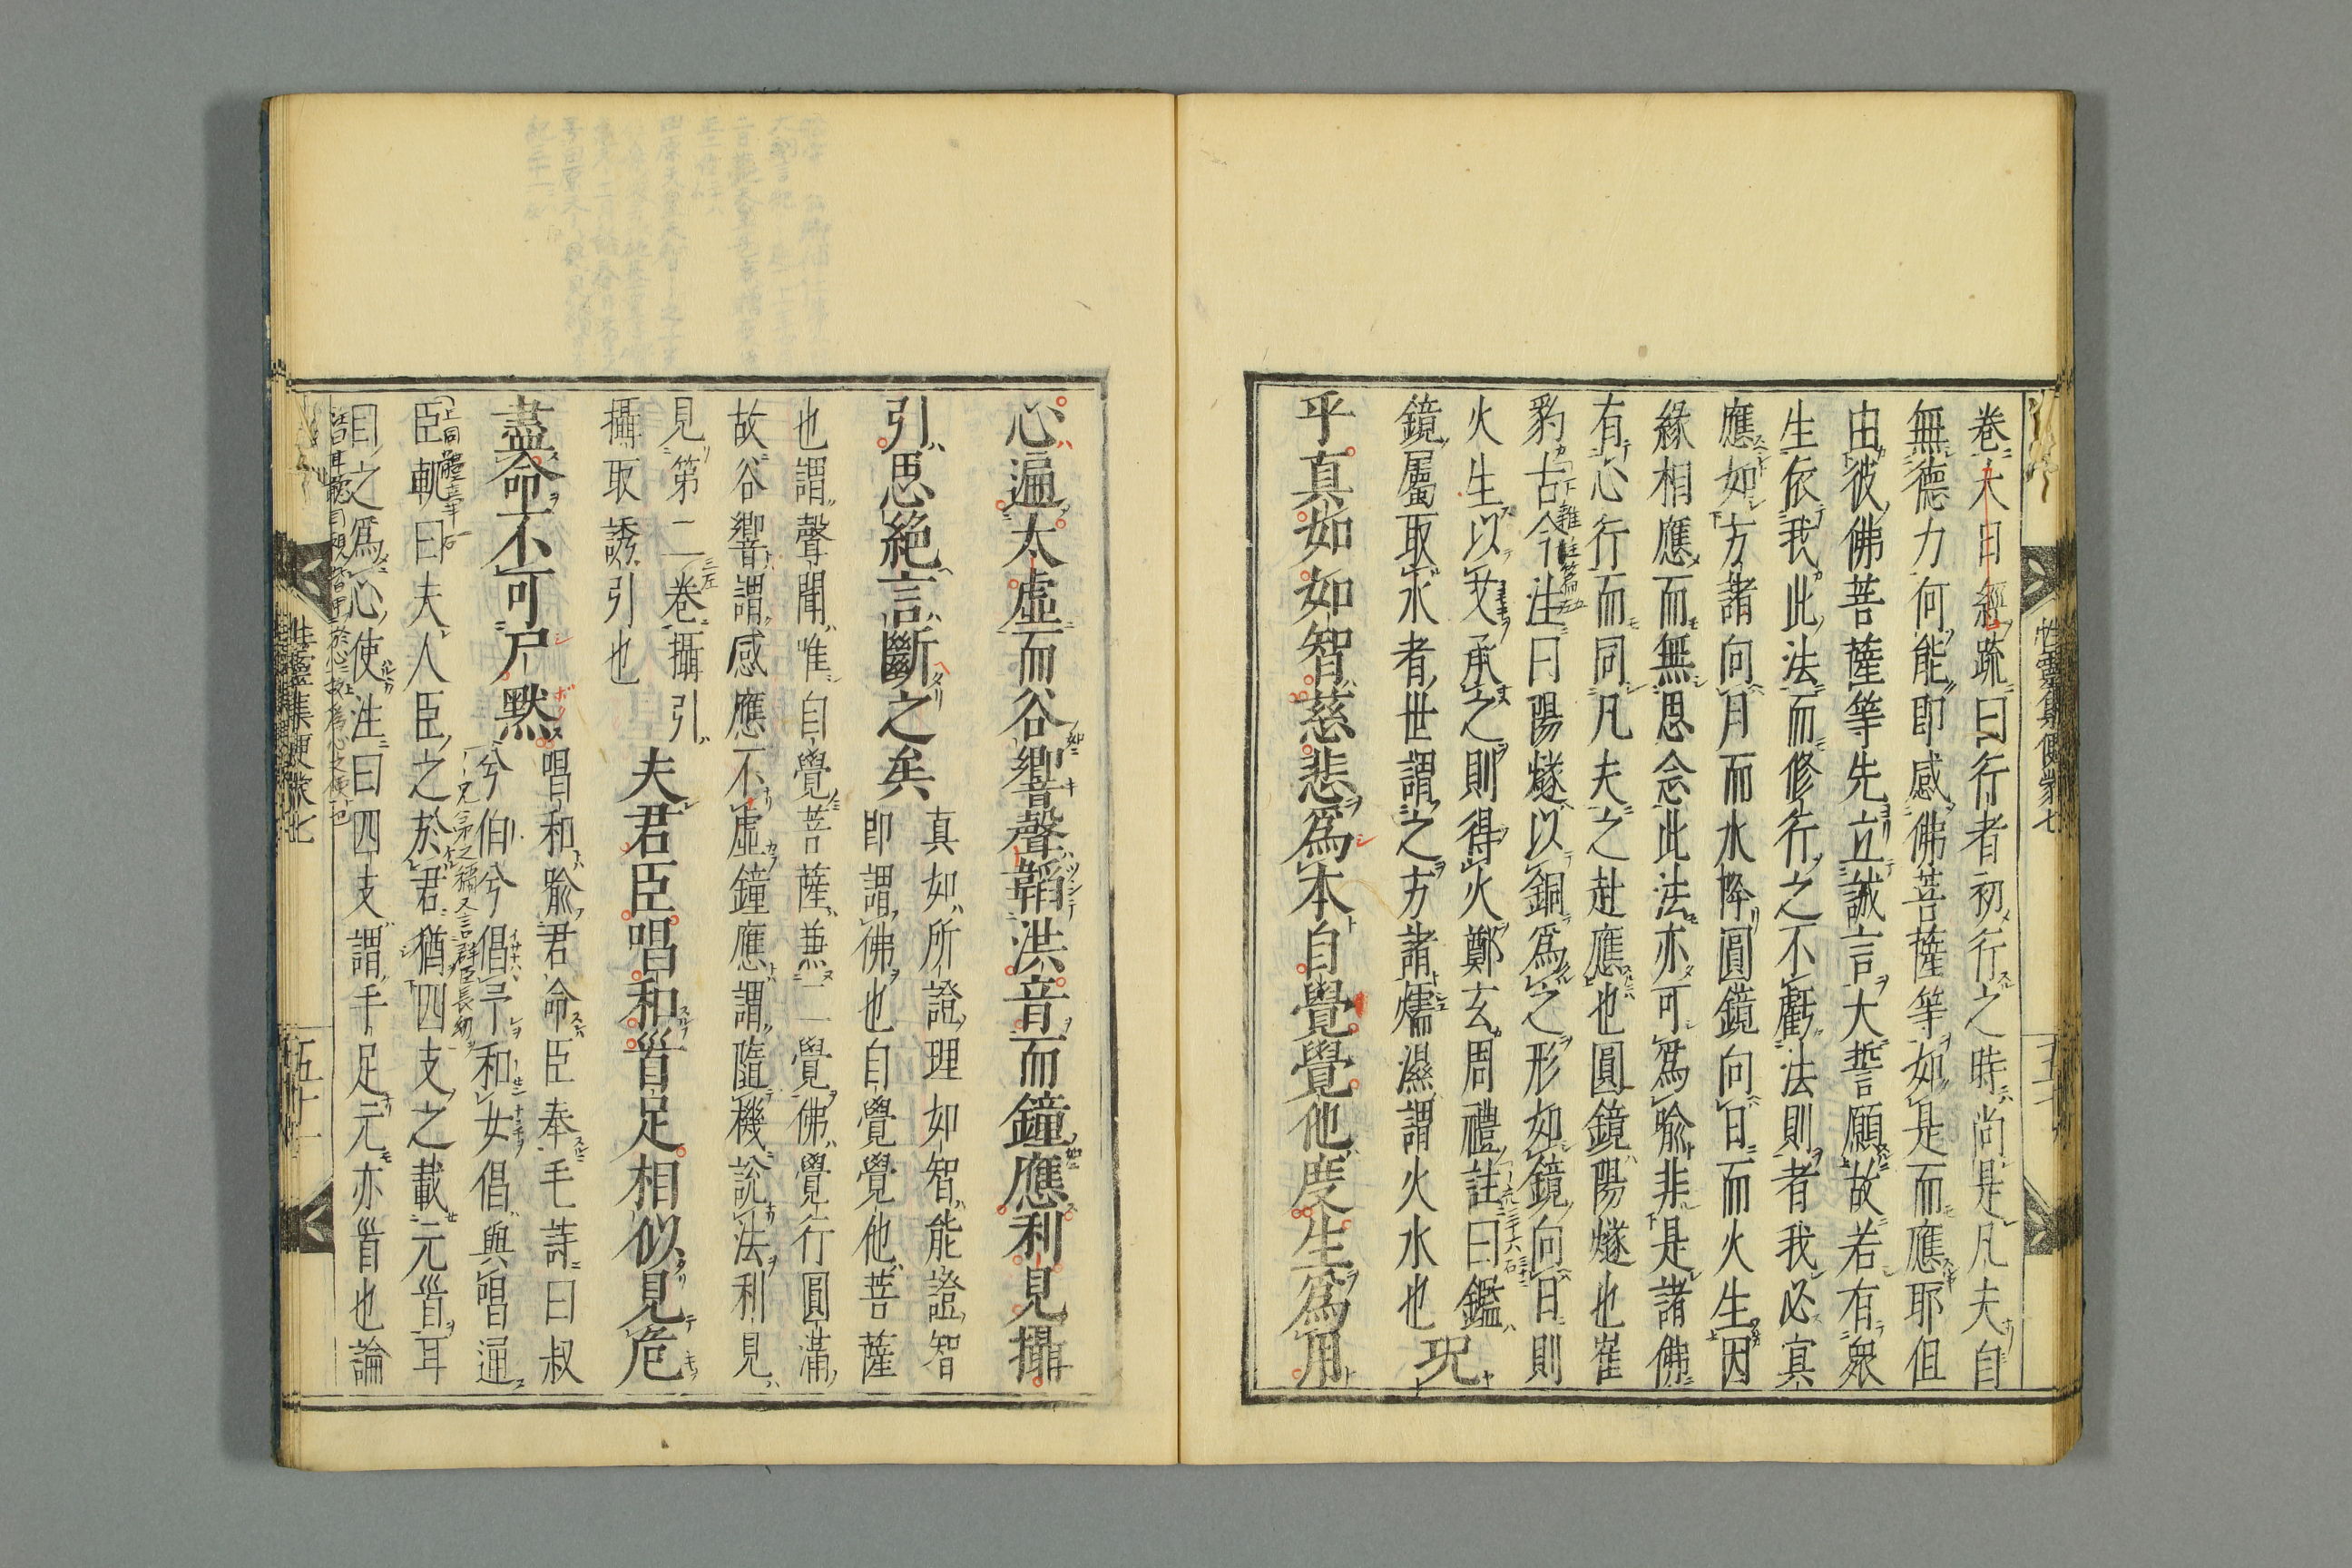 卷大日經疏曰行者初行之時尚是凡夫自
無德力何能即感佛菩薩等如是而應耶但
由彼佛菩薩等先立誠言大誓願故若有衆
生依我此法而修行之不虧法則者我必冥
應如方諸向月而水降圓鏡向日而火生因
緣相應而無思念此法亦可爲喩非是諸佛
有心行而同凡夫之赴應也圓鏡陽燧也崔
豹古今注曰陽燧以銅爲之形如鏡向日則
火生以艾承之則得火鄭玄周禮註曰鑑
鏡屬取水者世謂之方諸燸濕謂火水也
況
乎真如如智慈悲爲本自覺覺他度生爲用
心遍太虛而谷響聲韜洪音而鐘應利見攝
引思絕言斷之矣
真如所證理如智能證智
即謂佛也自覺覺他菩薩
也謂聲聞唯自覺菩薩兼二覺佛覺行圓滿
故谷響謂感應不虛鐘應謂隨機說法利見
見第二卷攝引
攝取誘引也
夫君臣唱和首足相似見危
盡命不可尸默
唱和喩君命臣奉毛詩曰叔
兮伯兮倡予和女倡與唱通
臣軌曰夫人臣之於君猶四支之載元首耳
目之爲心使注曰四支謂手足元亦首也論
性靈集便蒙七
五十一